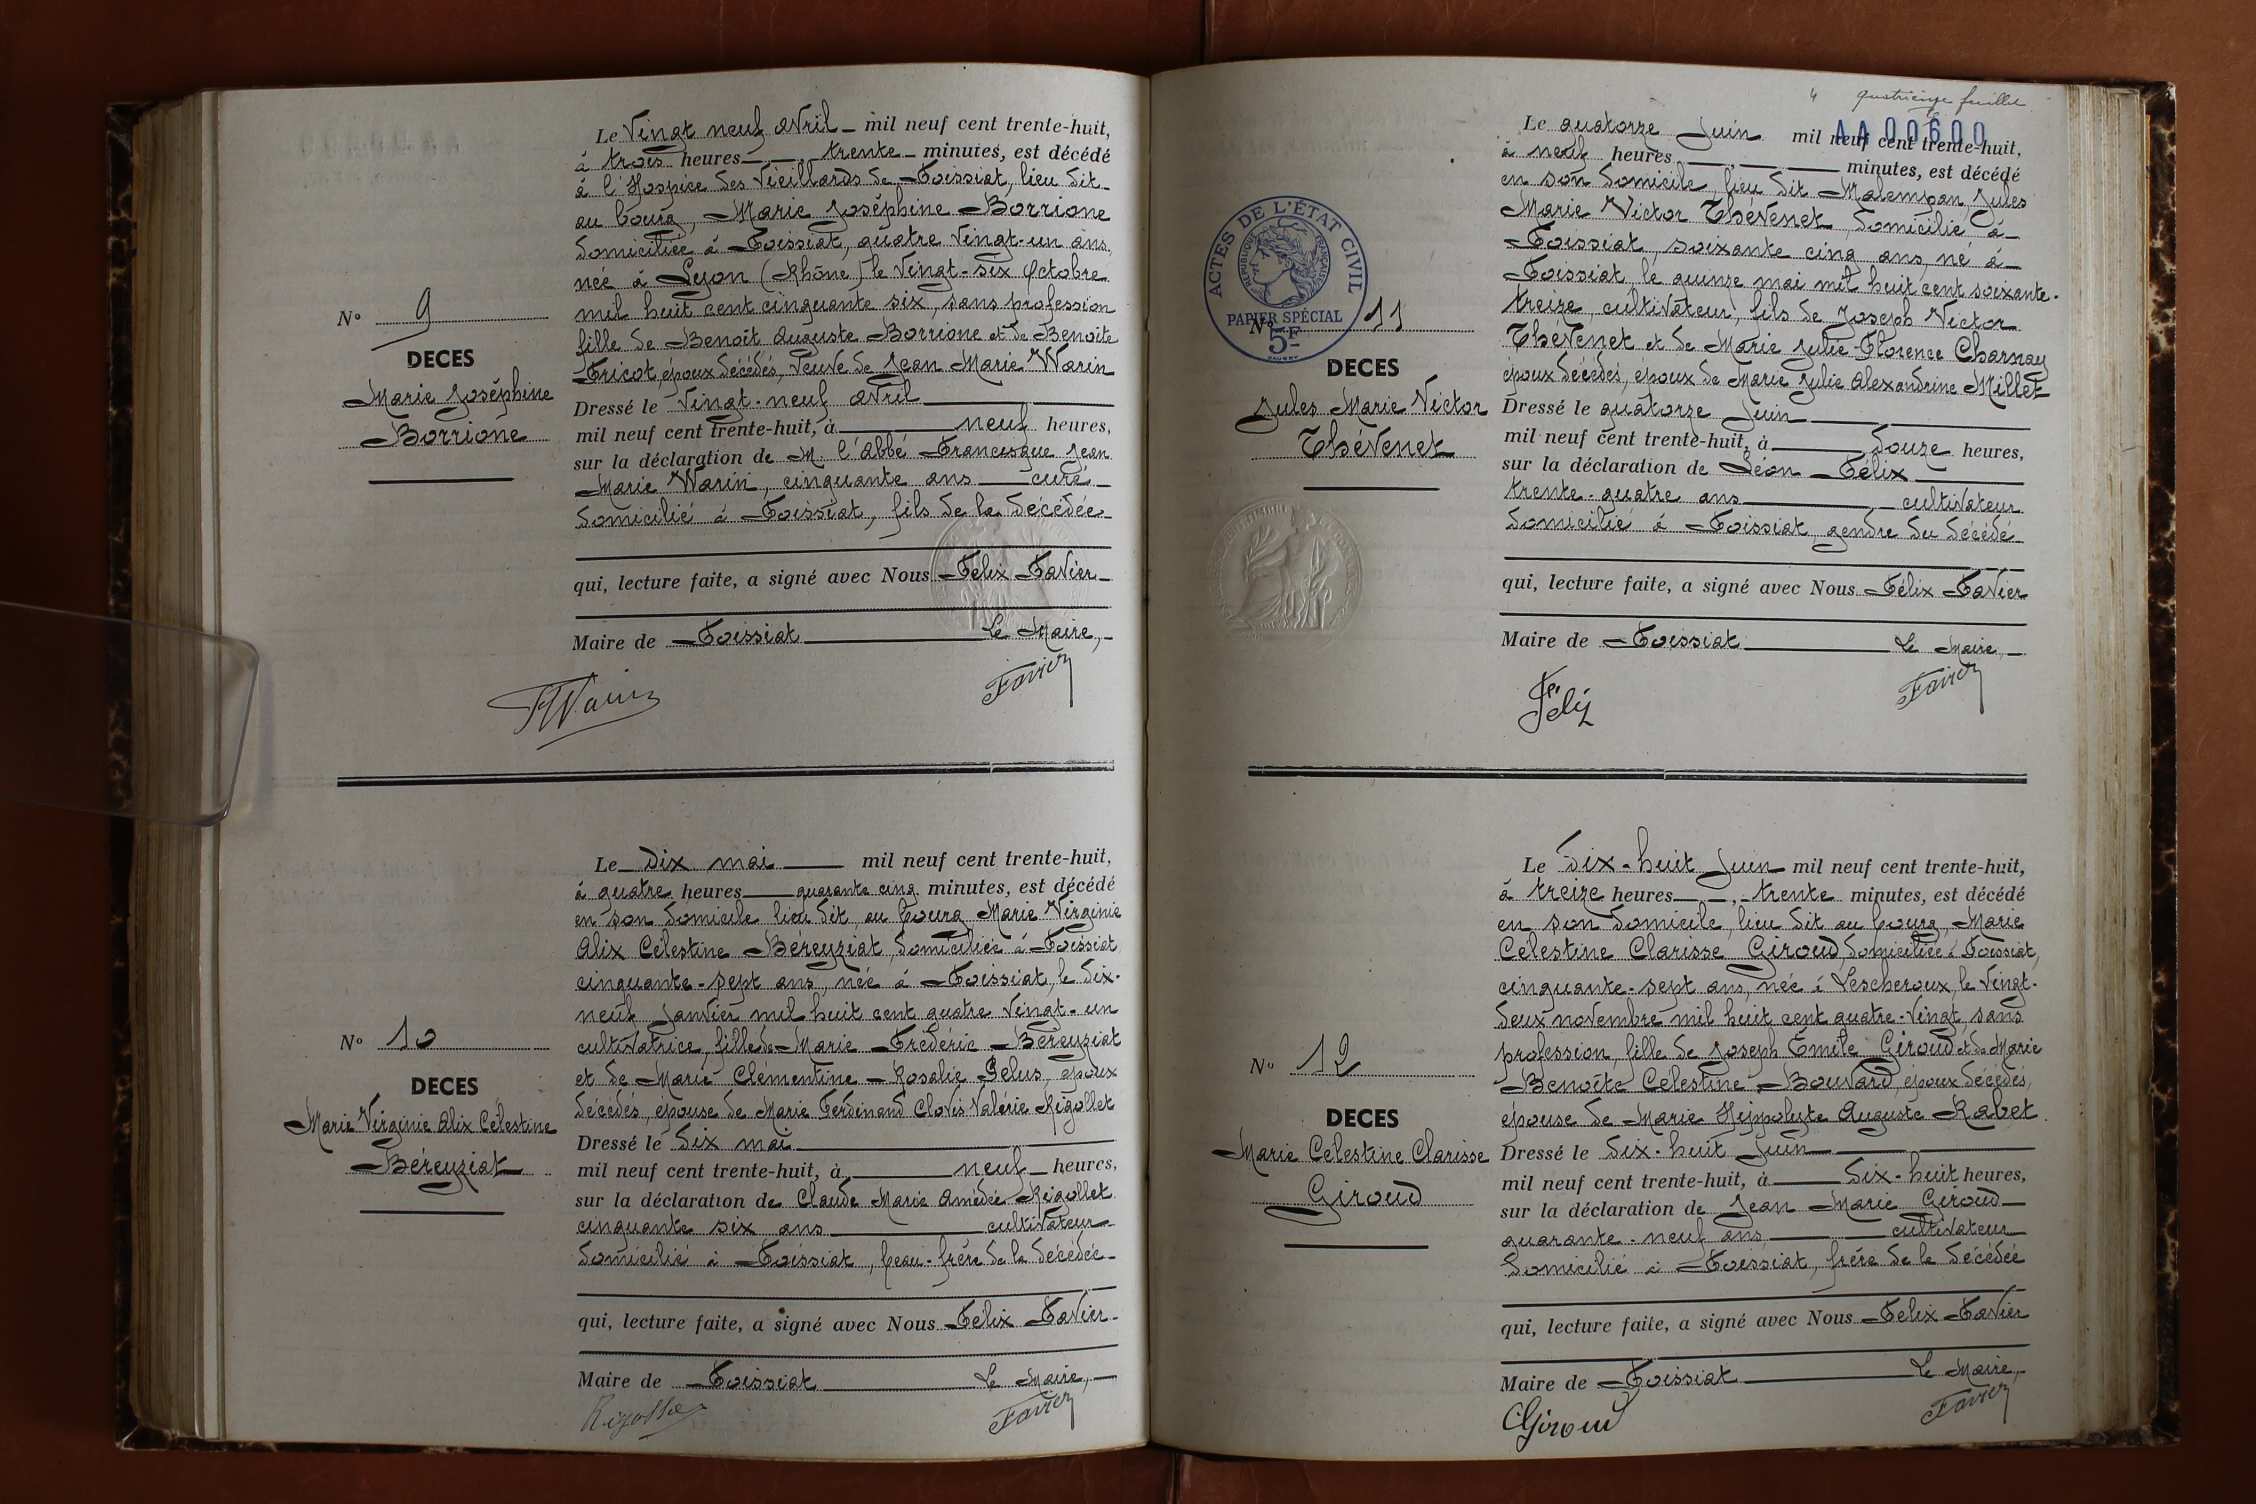 Le Vingt neuf avril mil neuf cent trente-huit,
à trois heures, trente minutes, est décédé
à l'Hospice des Vieillards de Foissiat, lieu dit
au bourg, Marie Joséphine Borrione
domiciliée à Foissiat, quatre vingt-un ans,
née à Lyon (Rhône) le vingt-six Octobre
mil huit cent cinquante six, sans profession
fille de Benoît Auguste Borrione et de Benoîte
Fricot, époux décédés, Veuve de Jean Marie Warin
Dressé le vingt-neuf avril
mil neuf cent trente-huit, à neuf heures,
sur la déclaration de M. l'Abbé Francisque Jean
Marie Warin, cinquante ans curé
domicilié à Foissiat, fils de la décédée
qui, lecture faite, a signé avec Nous Félix Favier
Maire de Foissiat Le Maire,
FWarin Favier
N° 9
DECES
Marie Joséphine
Borrione
Le dix mai mil neuf cent trente-huit,
à quatre heures quarante cinq minutes, est décédé
en son domicile lieu dit au bourg Marie Virginie
Alix Célestine Béreyziat, domiciliée à Foissiat
cinquante-sept ans, née à Foissiat, le dix-
neuf Janvier mil huit cent quatre vingt-un
cultivatrice, fille de Marie Frédéric Béreyziat
et de Marie Clémentine Rosalie Pelus, époux
décédés, épouse de Marie Ferdinand Clovis Valérie Rigollet
Dressé le dix mai
mil neuf cent trente-huit, à neuf heures,
sur la déclaration de Claude Marie Amédée Rigollet
cinquante six ans cultivateur
domicilié à Foissiat, beau-frère de la décédée
qui, lecture faite, a signé avec Nous Félix Favier
Maire de Foissiat Le Maire,
Rigollet Favier
N° 10
DECES
Marie Virginie Alix Célestine
Béreyziat
4 quatrième feuille
AA 00600
Le quatorze Juin mil neuf cent trente-huit,
à neuf heures, minutes, est décédé
en son domicile, lieu dit Malempan, Jules
Marie Victor Thévenet, domicilié à
Foissiat, soixante cinq ans, né à
Foissiat le quinze mai mil huit cent soixante-
treize, cultivateur, fils de Joseph Victor
Thévenet et de Marie Julie Florence Charnay
époux décédés, époux de Marie Julie Alexandrine Millet
Dressé le quatorze Juin
mil neuf cent trente-huit, à douze heures,
sur la déclaration de Léon Félix
trente-quatre ans cultivateur
domicilié à Foissiat gendre du décédé
qui, lecture faite, a signé avec Nous Félix Favier
Maire de Foissiat Le Maire,
Félix Favier
ACTES DE L'ÉTAT CIVIL
RÉPUBLIQUE FRANÇAISE
PAPIER SPÉCIAL
5F
N° 11
DECES
Jules Marie Victor
Thévenet
Le dix-huit Juin mil neuf cent trente-huit,
à treize heures, trente minutes, est décédé
en son domicile, lieu dit au bourg, Marie
Célestine Clarisse Giroud, domiciliée à Foissiat,
cinquante-sept ans, née à Lescheroux, le vingt-
deux novembre mil huit cent quatre-vingt, sans
profession, fille de Joseph Emile Giroud et de Marie
Benoîte Célestine Bouvard, époux décédés,
épouse de Marie Hippolyte Auguste Rabet
Dressé le dix-huit Juin
mil neuf cent trente-huit, à dix-huit heures,
sur la déclaration de Jean Marie Giroud
quarante-neuf ans cultivateur
domicilié à Foissiat, frère de la décédée
qui, lecture faite, a signé avec Nous Félix Favier
Maire de Foissiat Le Maire,
Giroud Favier
N° 12
DECES
Marie Célestine Clarisse
Giroud